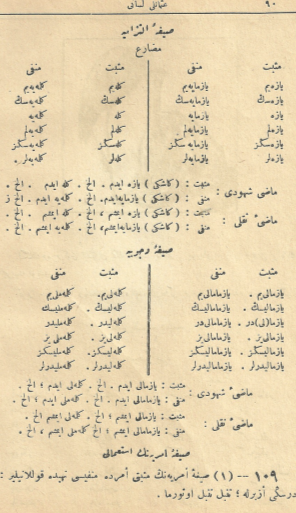 عثمانلی لسانی ٩٠
صیغهٔ التزامیه
مضارع
مثبت منفی مثبت منفی
یازه‌یم یازمایه‌یم کله‌یم کلمیه‌یم
یازه‌سك یازمایه‌سك کله‌سك کلمیه‌سك
یازه یازمایه کله کلمیه
یازه‌لم یازمایه‌لم کله‌لم کلمیه‌لم
یازه‌سکز یازمایه‌سکز کله‌سکز کلمیه‌سکز
یازه‌لر یازمایه‌لر کله‌لر کلمیه‌لر
ماضیٔ شهودی :
مثبت : (کاشکی) یازه ایدم . الخ . کله ایدم . الخ .
منفی : (کاشکی) یازمایه‌ایدم. الخ . کلمیه ایدم . الخ
ماضیٔ نقلی :
مثبت : (کاشکی) یازه ایمشم ، الخ . کله ایمشم . الخ .
منفی : (کاشکی) یازمایه‌ایمشم، الخ . کلمیه ایمشم . الخ .
صیغهٔ وجوبیه
مثبت منفی مثبت منفی
یازمالی‌یم . یازمامالی‌یم کلملی‌یم . کلمه‌ملی‌یم
یازمالیسك . یازمامالیسك کلملیسك . کلمه‌ملیسك
یازما(لی)در . یازمامالی‌در کلملیدر . کلمه‌ملیدر
یازمالی‌یز . یازمامالی‌یز کلملی‌یز . کلمه‌ملی‌یز
یازمالیسکز . یازمامالیسکز کلملیسکز . کلمه‌ملیسکز
یازمالیدرلر . یازمامالیدرلر کلملیدرلر . کلمه‌ملیدرلر
ماضیٔ شهودی :
مثبت : یازمالی ایدم . الخ . کلملی ایدم ؛ الخ .
منفی : یازمامالی ایدم . الخ . کلمه‌ملی ایدم ؛ الخ .
ماضیٔ نقلی :
مثبت : یازمالی ایمشم ؛ الخ . کلملی ایمشم الخ .
منفی : یازمامالی ایمشم ؛ الخ کلمه‌ملی ایمشم ، الخ .
صیغهٔ امریه‌نك استعمالی
١٠٩ -- (١) صیغهٔ امریه‌نك مثبتی امرده منفیسی نهیده قوللانیلیر :
درسکی ازبرله ؛ تنبل تنبل اوتورما .